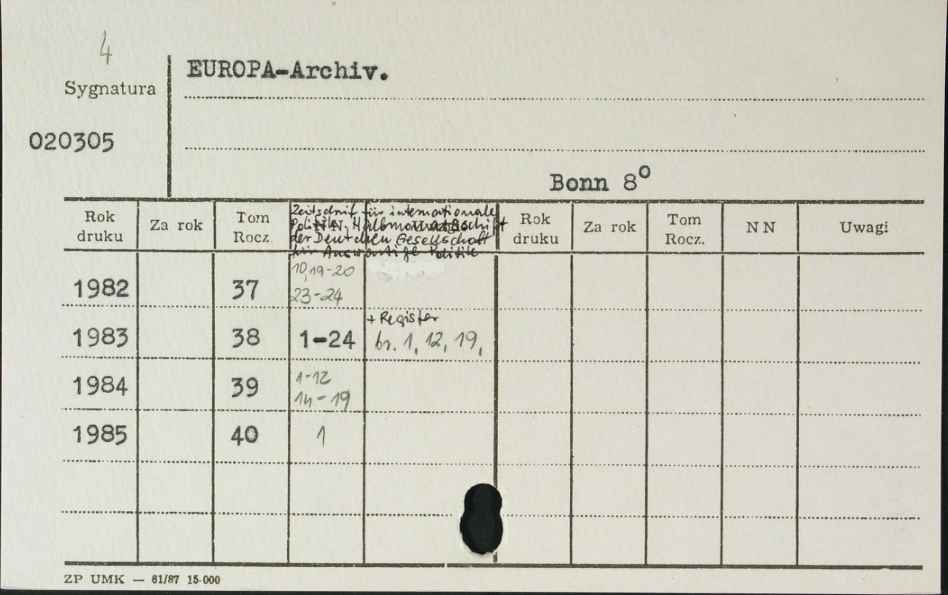 4
EUROPA-Archiv.
Sygnatura
020305
Bonn 8°
Rok druku Za rok Tom Rocz. Rok druku Za rok Tom Rocz. NN Uwagi
Zeitschrift für internationale
Politik, Halbmonatsschrift
der Deutschen Gesellschaft
für Auswärtige Politik
1982 37 10,19-20
23-24
+ Register
1983 38 1-24 br. 1, 12, 19,
1984 39 1-12
14-19
1985 40 1
ZP UMK — 61/87 15·000